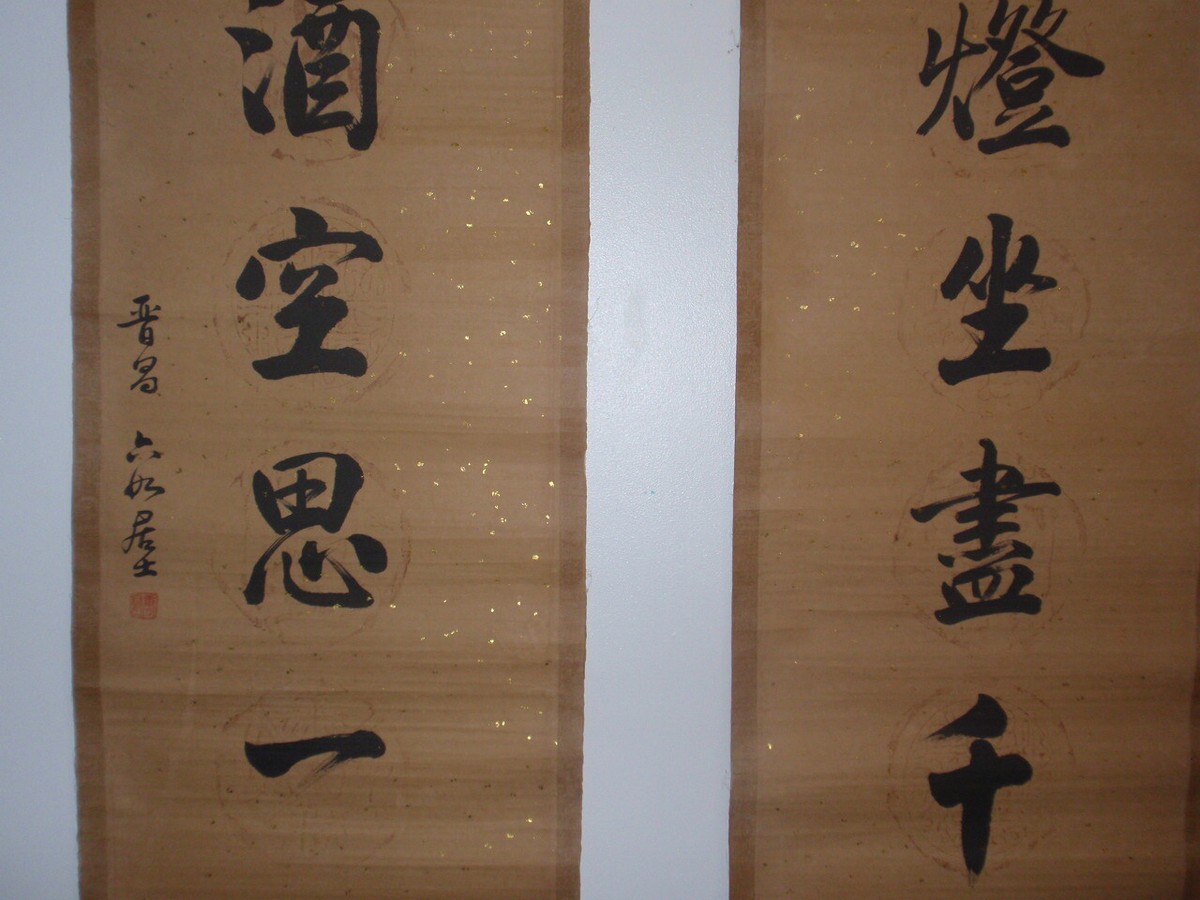 燈坐盡千
酒空思一
晋昌 六如居士